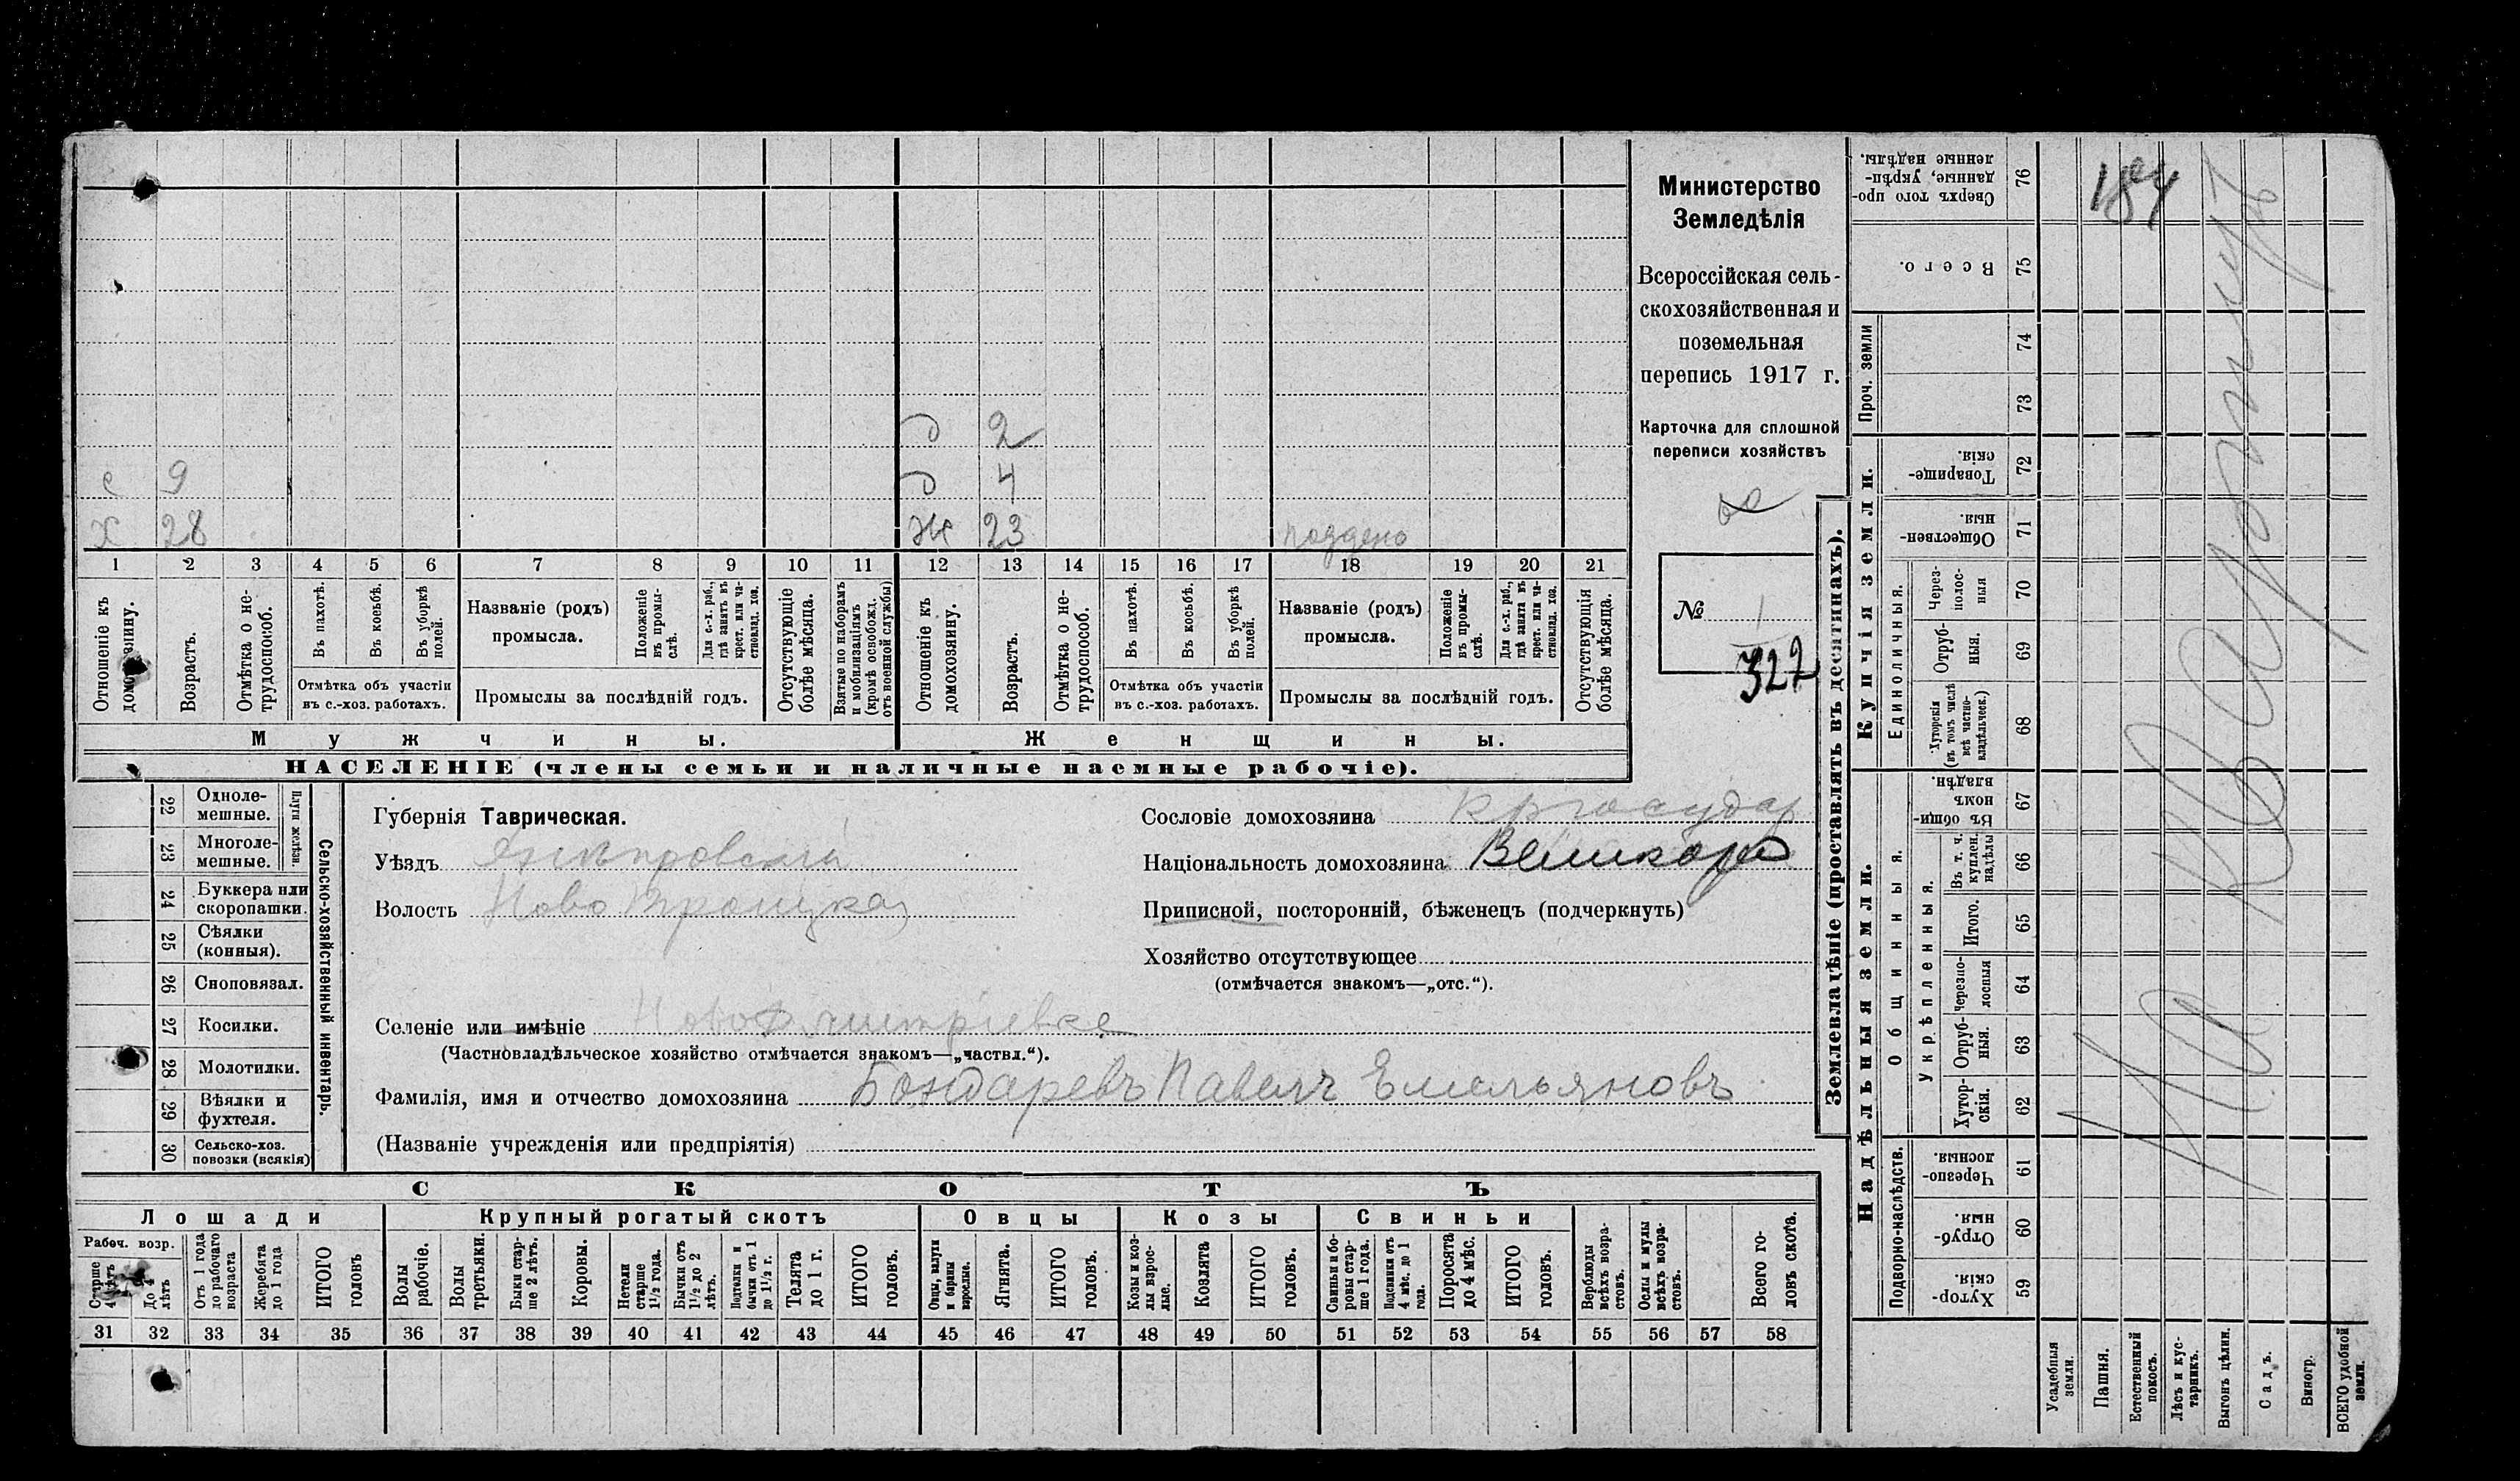 д 2
с 9 д 4
х 28 ж 23 поддено
1 2 3 4 5 6 7 8 9 10 11 12 13 14 15 16 17 18 19 20 21
Отношеніе къ домохозяину.
Возрастъ.
Отмѣтка о нетрудоспособ.
Въ пахотѣ.
Въ косьбѣ.
Въ уборкѣ полей.
Отмѣтка объ участіи
въ с.-хоз. работахъ.
Названіе (родъ)
промысла.
Положеніе въ промыслѣ.
Для с.-х. раб., гдѣ занятъ въ крест. или частновлад. хоз.
Промыслы за послѣдній годъ.
Отсутствующіе болѣе мѣсяца.
Взятые по наборамъ и мобилизаціямъ (кромѣ освобожд. отъ военной службы)
Отношеніе къ домохозяину.
Возрастъ.
Отмѣтка о нетрудоспособ.
Въ пахотѣ.
Въ косьбѣ.
Въ уборкѣ полей.
Отмѣтка объ участіи
въ с.-хоз. работахъ.
Названіе (родъ)
промысла.
Положеніе въ промыслѣ.
Для с.-х. раб., гдѣ занята въ крест. или частновлад. хоз.
Промыслы за послѣдній годъ.
Отсутствующія болѣе мѣсяца.
Мужчины.
Женщины.
НАСЕЛЕНІЕ (члены семьи и наличные наемные рабочіе).
Министерство
Земледѣлія
Всероссійская сель-
скохозяйственная и
поземельная
перепись 1917 г.
Карточка для сплошной
переписи хозяйствъ
№ 1
322
22 Одноле-
мешные.
23 Многоле-
мешные.
Плуги желѣзн.
24 Буккера или
скоропашки.
25 Сѣялки
(конныя).
26 Сноповязал.
27 Косилки.
28 Молотилки.
29 Вѣялки и
фухтеля.
30 Сельско-хоз.
повозки (всякія)
Сельско-хозяйственный инвентарь.
Губернія Таврическая.
Уѣздъ Днѣпровскій
Волость Ново Троицкая
Сословіе домохозяина кр государ
Національность домохозяина Великор
Приписной, посторонній, бѣженецъ (подчеркнуть)
Хозяйство отсутствующее
(отмѣчается знакомъ—„отс.“).
Селеніе или имѣніе НовоДмитріевке
(Частновладѣльческое хозяйство отмѣчается знакомъ—„частвл.“).
Фамилія, имя и отчество домохозяина Бондаревъ Павелъ Емельяновъ
(Названіе учрежденія или предпріятія)
СКОТЪ
Лошади
Крупный рогатый скотъ
Овцы
Козы
Свиньи
Рабоч. возр.
Старше 4 лѣтъ
До 4 лѣтъ
Отъ 1 года до рабочаго возраста
Жеребята до 1 года
ИТОГО головъ
Волы рабочіе.
Волы третьяки.
Быки старше 2 лѣтъ.
Коровы.
Нетели старше 1½ года.
Бычки отъ 1½ до 2 лѣтъ.
Подтелки и бычки отъ 1 до 1½ г.
Телята до 1 г.
ИТОГО головъ.
Овцы, валухи и бараны взрослые.
Ягнята.
ИТОГО головъ.
Козы и козлы взрослые.
Козлята
ИТОГО головъ.
Свиньи и боровы старше 1 года.
Подсвинки отъ 4 мѣс. до 1 года.
Поросята до 4 мѣс.
ИТОГО головъ.
Верблюды всѣхъ возрастовъ.
Ослы и мулы всѣхъ возрастовъ.
Всего головъ скота.
31 32 33 34 35 36 37 38 39 40 41 42 43 44 45 46 47 48 49 50 51 52 53 54 55 56 57 58
Землевладѣніе (проставлять въ десятинахъ).
Надѣльныя земли.
Купчія земли.
Проч. земли
Подворно-наслѣдств.
Общинныя.
Укрѣпленныя.
Единоличныя.
Хуторскія. 59
Отрубныя. 60
Черезполосныя. 61
Хуторскія. 62
Отрубныя. 63
Черезполосныя 64
Итого. 65
Въ т. ч. куплен. надѣлы 66
Въ общинномъ владѣн. 67
Хуторскія (въ томъ числѣ всѣ частновладѣльческ.) 68
Отрубныя. 69
Черезполосныя 70
Общественныя. 71
Товарищескія. 72
73
74
Всего. 75
Сверхъ того проданные, укрѣпленные надѣлы. 76
Усадебныя земли.
Пашня.
Естественный покосъ.
Лѣсъ и кустарникъ.
Выгонъ цѣлин.
Садъ.
Виногр.
ВСЕГО удобной земли.
На квартиръ